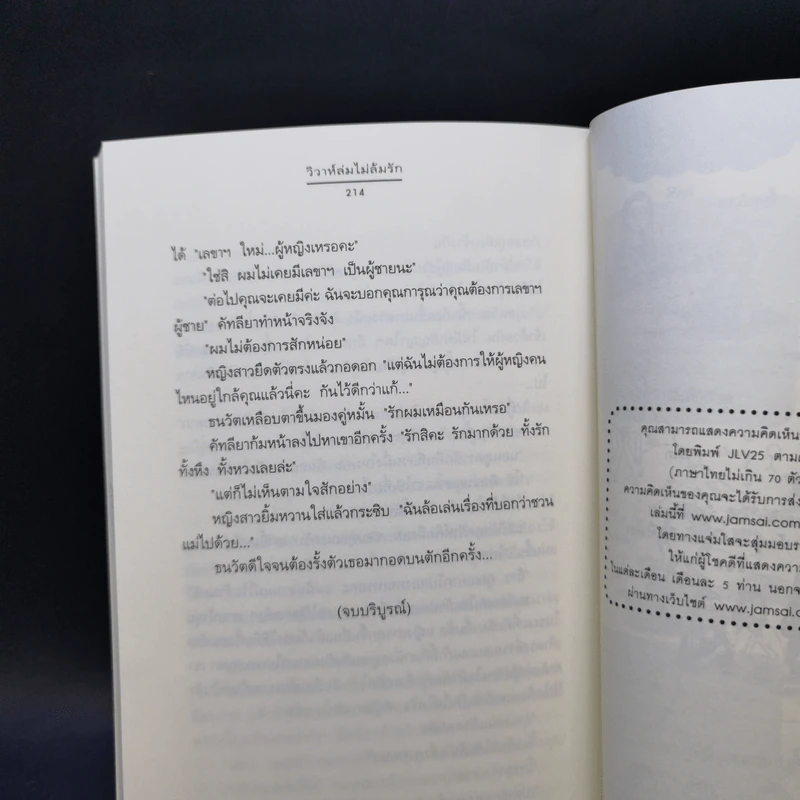 วิวาห์ล่มไม่ล้มรัก
214
ได้ "เลขาฯ ใหม่...ผู้หญิงเหรอคะ"
"ใช่สิ ผมไม่เคยมีเลขาฯ เป็นผู้ชายนะ"
"ต่อไปคุณจะเคยมีค่ะ ฉันจะบอกคุณการุณว่าคุณต้องการเลขาฯ
ผู้ชาย" คัทลียาทำหน้าจริงจัง
"ผมไม่ต้องการสักหน่อย"
หญิงสาวยืดตัวตรงแล้วกอดอก "แต่ฉันไม่ต้องการให้ผู้หญิงคน
ไหนอยู่ใกล้คุณแล้วนี่คะ กันไว้ดีกว่าแก้..."
ธนวัตเหลือบตาขึ้นมองคู่หมั้น "รักผมเหมือนกันเหรอ"
คัทลียาก้มหน้าลงไปหาเขาอีกครั้ง "รักสิคะ รักมากด้วย ทั้งรัก
ทั้งหึง ทั้งหวงเลยล่ะ"
"แต่ก็ไม่เห็นตามใจสักอย่าง"
หญิงสาวยิ้มหวานใส่แล้วกระซิบ "ฉันล้อเล่นเรื่องที่บอกว่าชวน
แม่ไปด้วย..."
ธนวัตดีใจจนต้องรั้งตัวเธอมากอดบนตักอีกครั้ง...
(จบบริบูรณ์)
คุณสามารถแสดงความคิดเห็น
โดยพิมพ์ JLV25 ตาม
(ภาษาไทยไม่เกิน 70 ตัว
ความคิดเห็นของคุณจะได้รับการส่ง
เล่มนี้ที่ www.jamsai.
โดยทางแจ่มใสจะสุ่มมอบ
ให้แก่ผู้โชคดีที่แสดงความ
ในแต่ละเดือน เดือนละ 5 ท่าน นอก
ผ่านทางเว็บไซต์ www.jamsai.